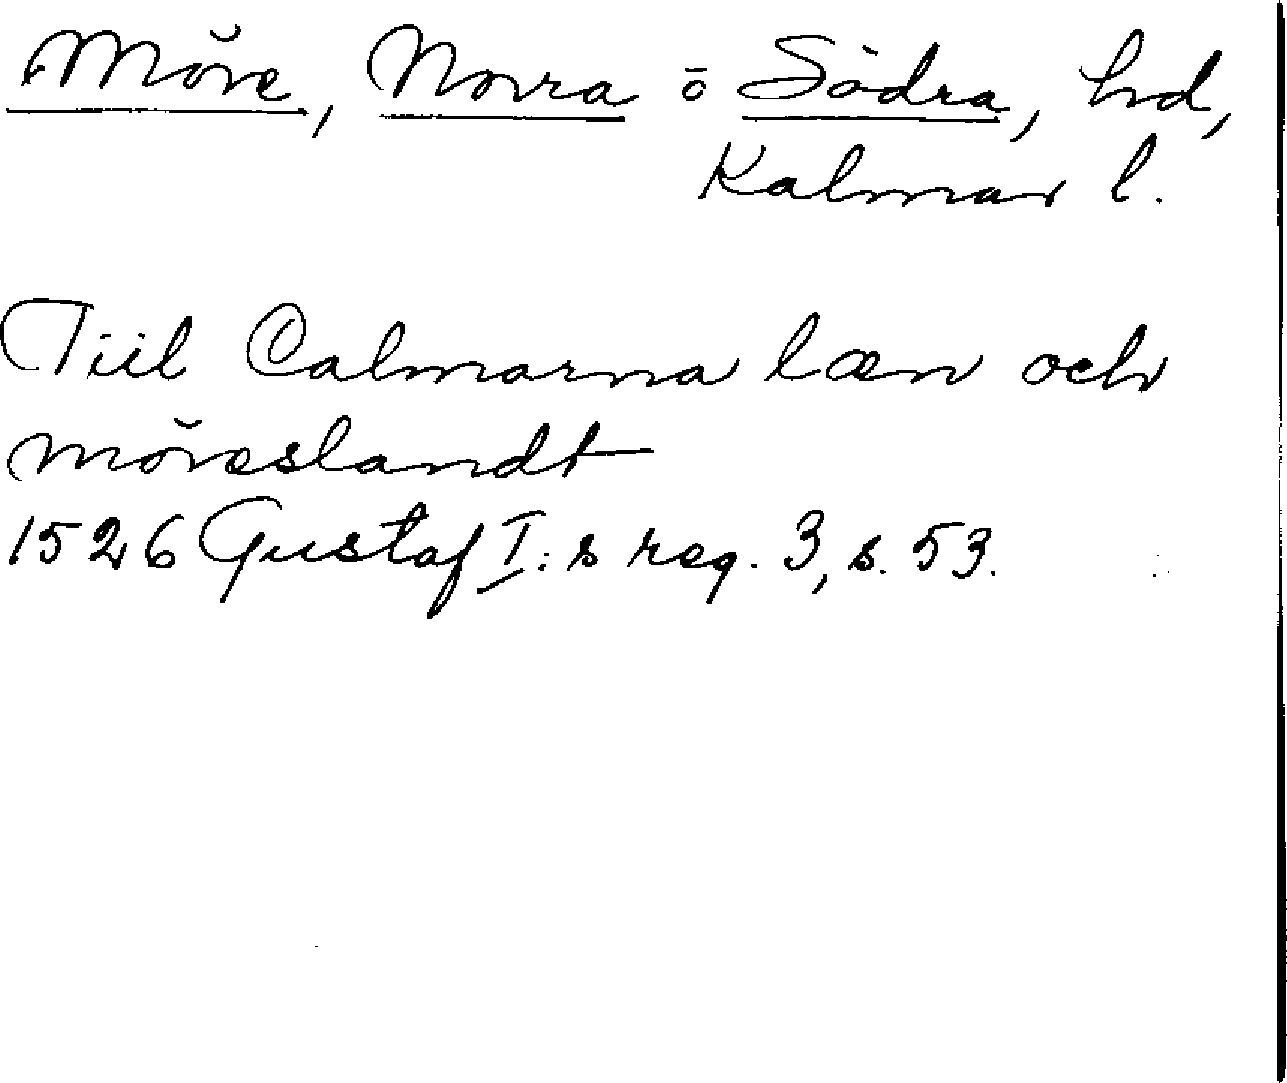 Möre, Norra o Södra, hd,
Kalmar l.
Tiil Calmarna læn och
möreslandt
1526 Gustaf I:s reg. 3, s. 53.